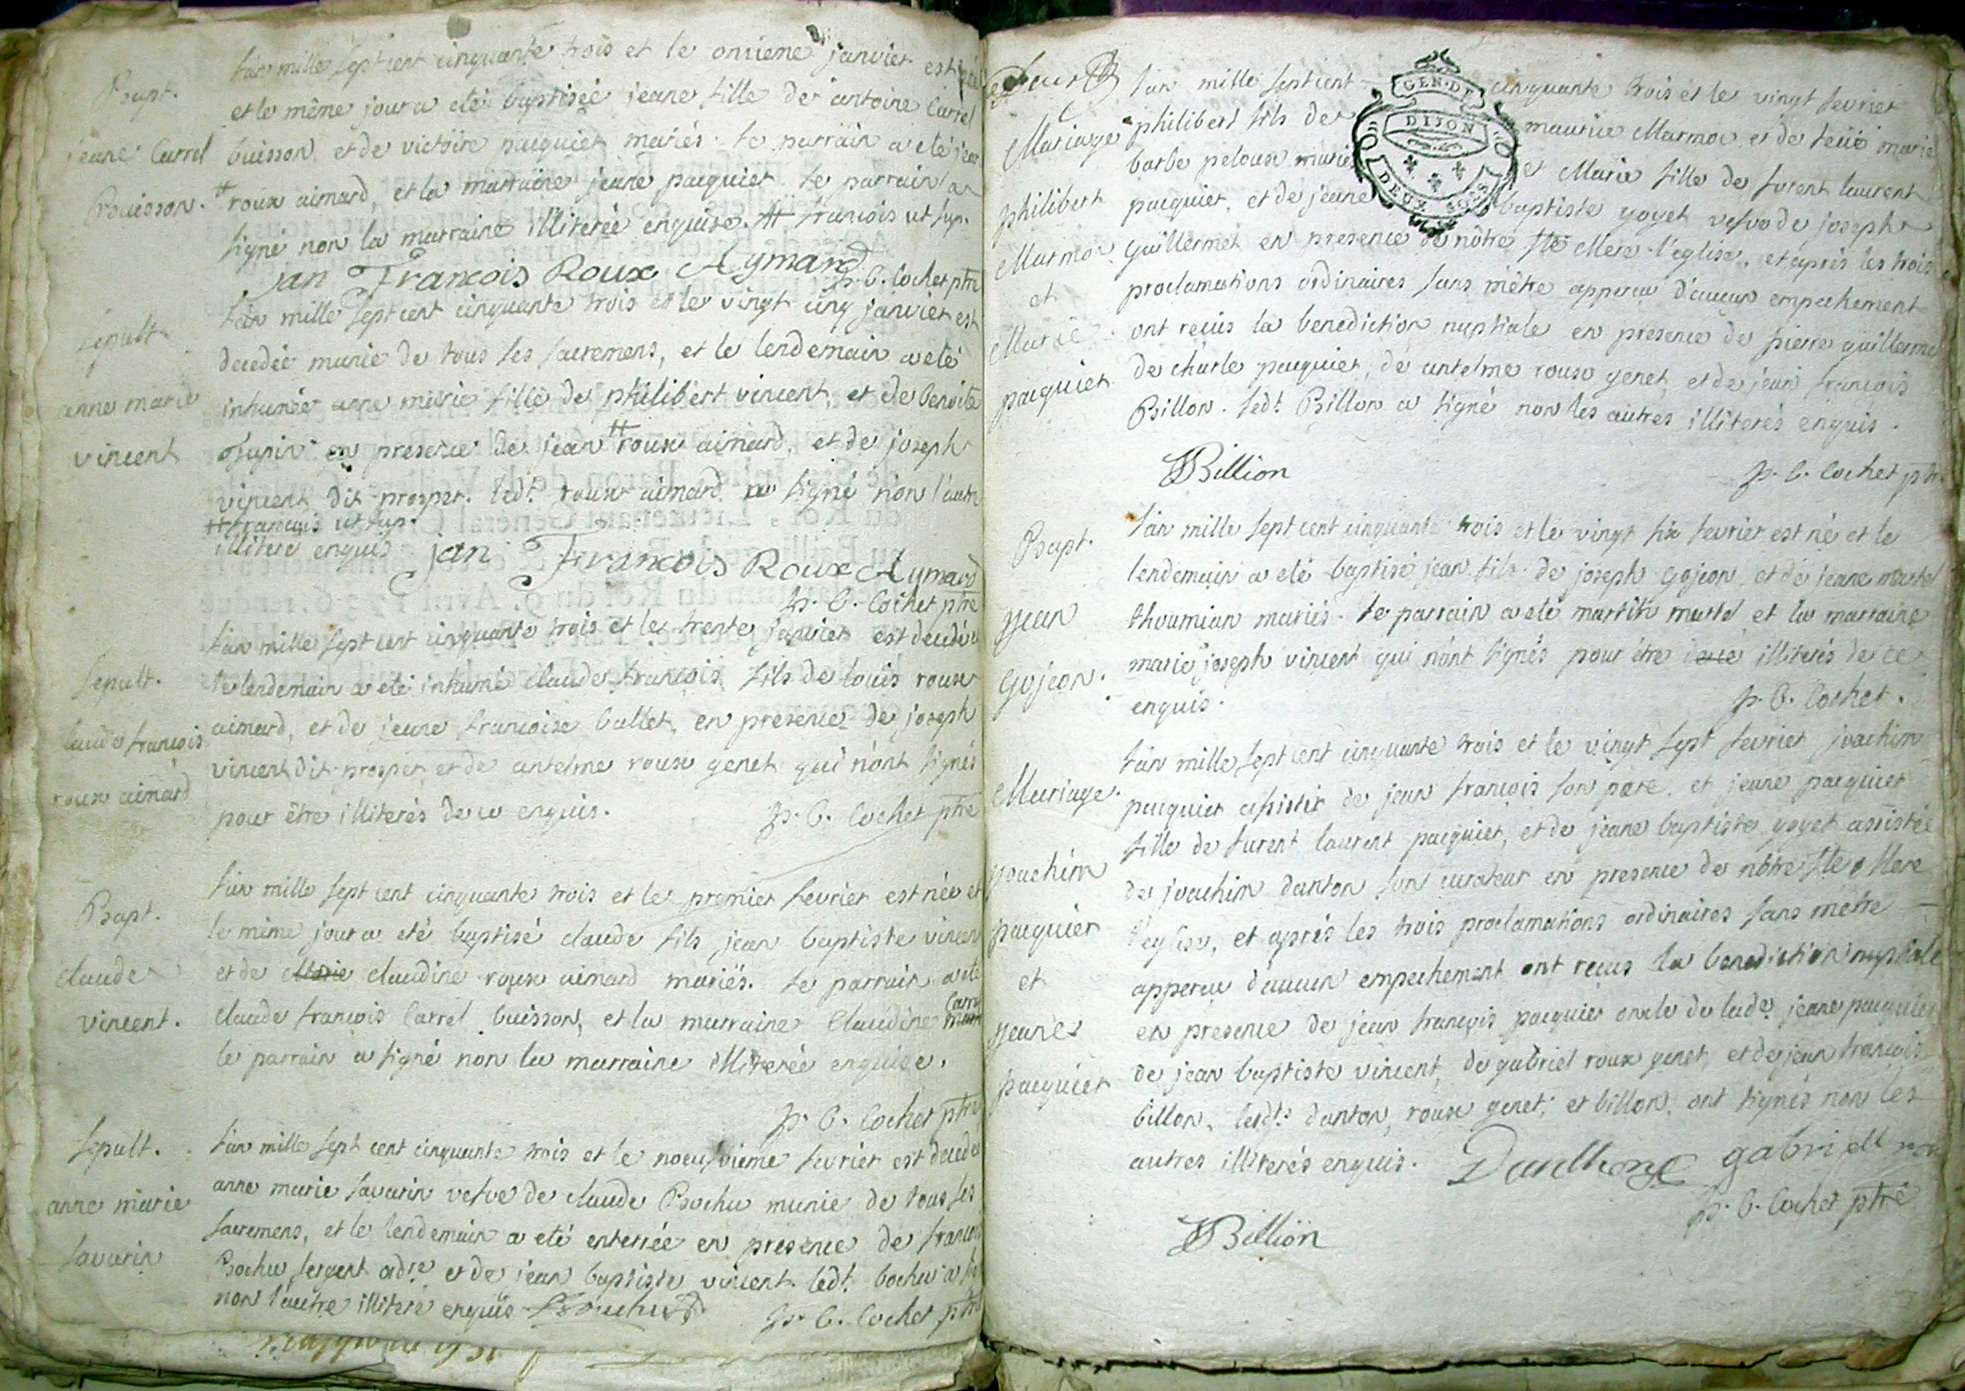 Bapt.
jeane Carrel
Bouisson.
l'an mille sept cent cinquante trois et le onzieme janvier est née
et le même jour a eté baptisée jeane fille de antoine Carrel
buisson et de victoire pacquier mariés. le parrain a eté jean
roux aimard, et la marraine jeane pacquier. le parrain a
signé non la marraine illiterée enquise. # francois ut sup.
jan François Roux Aymard
p. C. Cochet ptre
Sepult.
anne marie
vincent
l'an mille sept cent cinquante trois et le vingt cinq janvier est
decedée munie de tous les sacremens, et le lendemain a eté
inhumée anne marie fille de philibert vincent, et de benoite
en presence de jean # roux aimard, et de joseph
vincent dit prosper. ledt. roux aimard a signé non l'autre
# francois ut sup.
illiteré enquis
jan François Roux Aymard
p. C. Cochet ptre
Sepult.
claude françois
roux aimard
l'an mille sept cent cinquante trois et le trente janvier est decedé
le lendemain a eté inhumé claude françois fils de louis roux
aimard, et de jeane francoise ballet, en presence de joseph
vincent dit prosper et de antelme roux genet qui n'ont signés
pour être illiterés de ce enquis.
p. C. Cochet ptre
Bapt.
claude
vincent.
l'an mille sept cent cinquante trois et le premier fevrier est née et
le même jour a eté baptisé claude fils jean baptiste vincent
et de claudine roux aimard mariés. le parrain a eté
claude françois Carrel buisson, et la marraine Claudine
le parrain a signé non la marraine illiterée enquise.
p. C. Cochet ptre
Sepult.
anne marie
savarin
l'an mille sept cent cinquante trois et le noeufvieme fevrier est decedée
anne marie savarin vefve de claude Bochu munie de tous les
sacremens, et le lendemain a eté enterrée en presence de francois
Bochu sergent ordre et de jean baptiste vincent. ledt. bochu a
non l'autre illiteré enquis
p. C. Cochet ptre
GEN. DE
DIJON
DEUX SOLS
Mariage
philibert
Marmoc
et
Marie
pacquier
l'an mille sept cent cinquante trois et le vingt fevrier
philibert fils de maurice Marmoc et de feüe marie
barbe peloux marié et Marie fille de furent laurent
pacquier, et de jeane baptiste goyet vefve de joseph
Guillermet en presence de nôtre ste Mere l'eglise, et après les trois
proclamations ordinaires sans m'être apperçu d'aucun empechement
ont reçus la benediction nuptiale en presence de pierre guillermet
de charle pacquier, de antelme roux genet, et de jean françois
Billon. ledt. Billon a signé non les autres illiterés enquis.
JBillion
p. C. Cochet ptre
Bapt.
jean
Gojeon.
l'an mille sept cent cinquante trois et le vingt six fevrier est né et le
lendemain a eté baptisé jean fils de joseph Gojeon, et de jeane martel
thoumian mariés. le parrain a eté martin martel et la marraine
marie joseph vincent qui n'ont signés pour être illiterés de ce
enquis.
p. C. Cochet.
Mariage.
joachim
pacquier
et
jeane
pacquier
l'an mille sept cent cinquante trois et le vingt sept fevrier joachim
pacquier assisté de jean françois son pere, et jeane pacquier
fille de furent laurent pacquier, et de jeane baptiste goyet assistée
de joachim danton son curateur en presence de nôtre ste Mere
l'eglise, et après les trois proclamations ordinaires sans m'être
apperçu d'aucun empechement ont reçus la benediction nuptiale
en presence de jean françois pacquier oncle de lade. jeane pacquier
de jean baptiste vincent, de gabriel roux genet, et de jean françois
billon, lesdts danton, roux genet, et billon, ont signés non les
autres illiterés enquis.
gabriell rou
JBillion
p. C. Cochet ptre